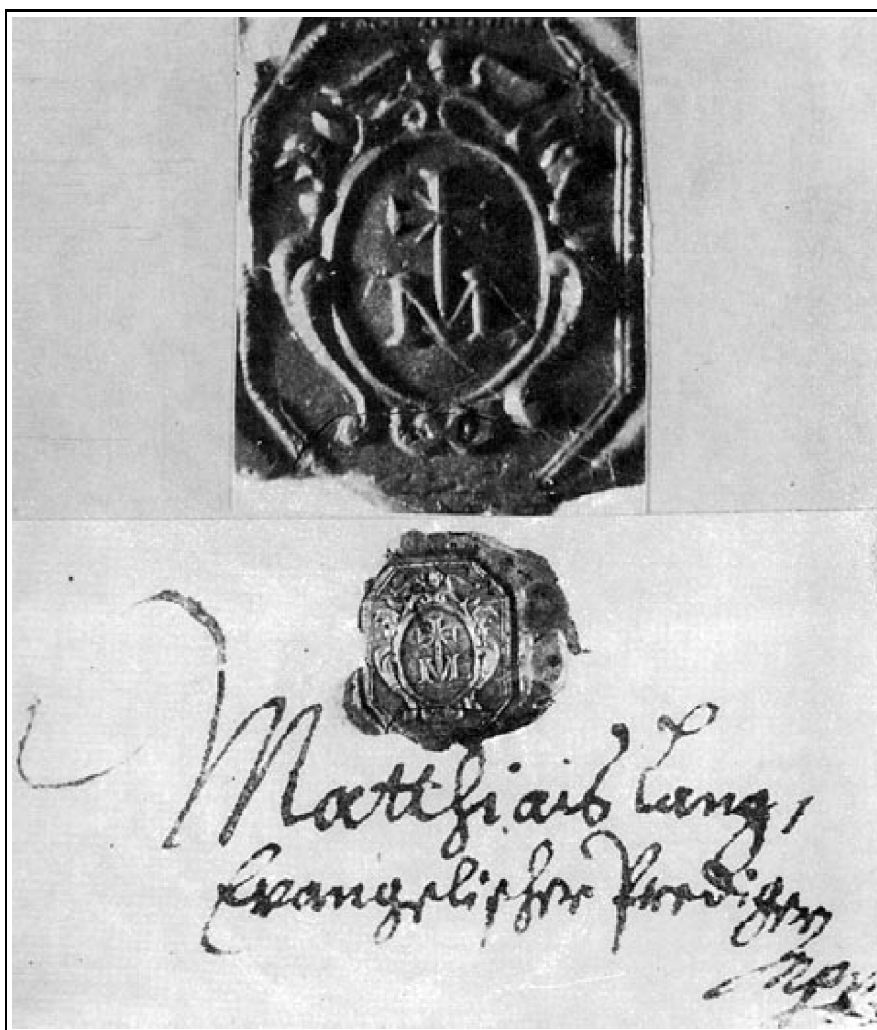 M
M
Matthias Lang,
Evangelischer Prediger